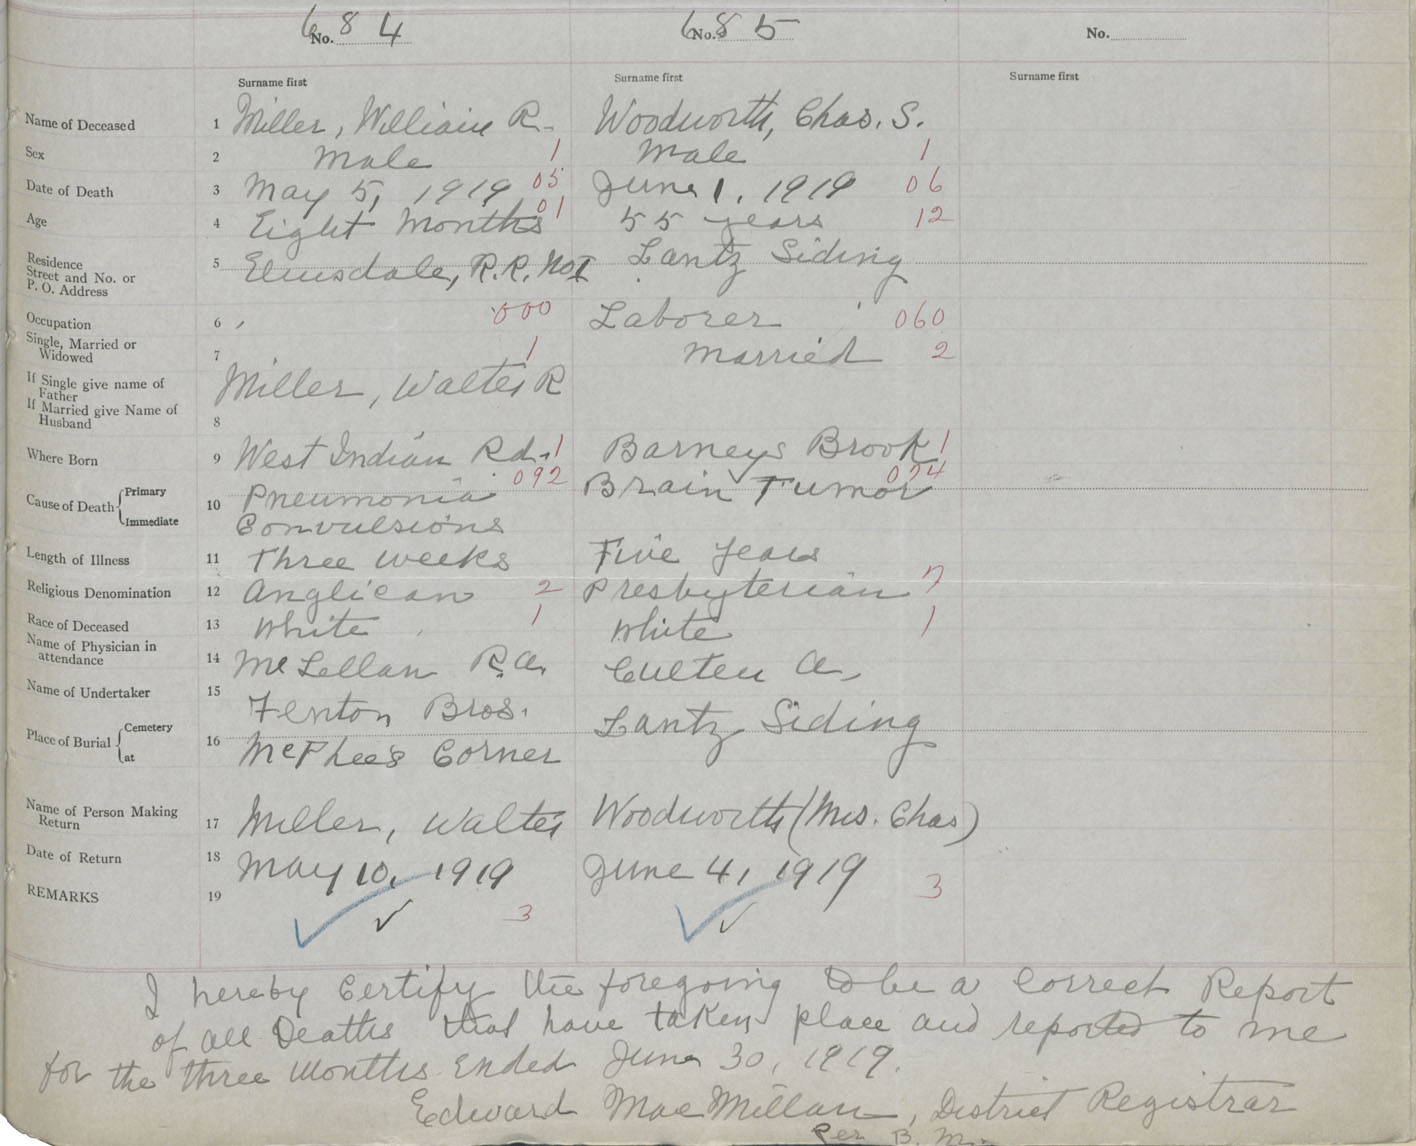 No. 684 No. 685 No.
Surname first Surname first Surname first
Name of Deceased 1 Miller, William R. Woodworth, Chas. S.
Sex 2 Male 1 Male 1
Date of Death 3 May 5, 1919 05 June 1, 1919 06
Age 4 Eight Months 01 55 years 12
Residence
Street and No. or
P. O. Address
5 Elmsdale, R.R. No 1 Lantz Siding
Occupation 6 000 Laborer 060
Single, Married or
Widowed
7 1 Married 2
If Single give name of
Father
If Married give Name of
Husband
8 Miller, Walter R
Where Born 9 West Indian Rd. 1 Barneys Brook 1
Cause of Death { Primary
Immediate
10 Pneumonia 092 Brain Tumor 074
Convulsions
Length of Illness 11 Three weeks Five years
Religious Denomination 12 Anglican 2 Presbyterian 7
Race of Deceased 13 White 1 White 1
Name of Physician in
attendance
14 McLellan R.A. Culten A.
Name of Undertaker 15 Fenton Bros.
Place of Burial { Cemetery
at
16 McPhee's Corner Lantz Siding
Name of Person Making
Return
17 Miller, Walter Woodworth (Mrs. Chas)
Date of Return 18 May 10, 1919 June 4, 1919
REMARKS 19 ✓ ✓ 3 ✓ ✓ 3
I hereby Certify the foregoing to be a Correct Report
of all Deaths that have taken place and reported to me
for the three Months Ended June 30, 1919.
Edward MacMillan, District Registrar
Per B. M.